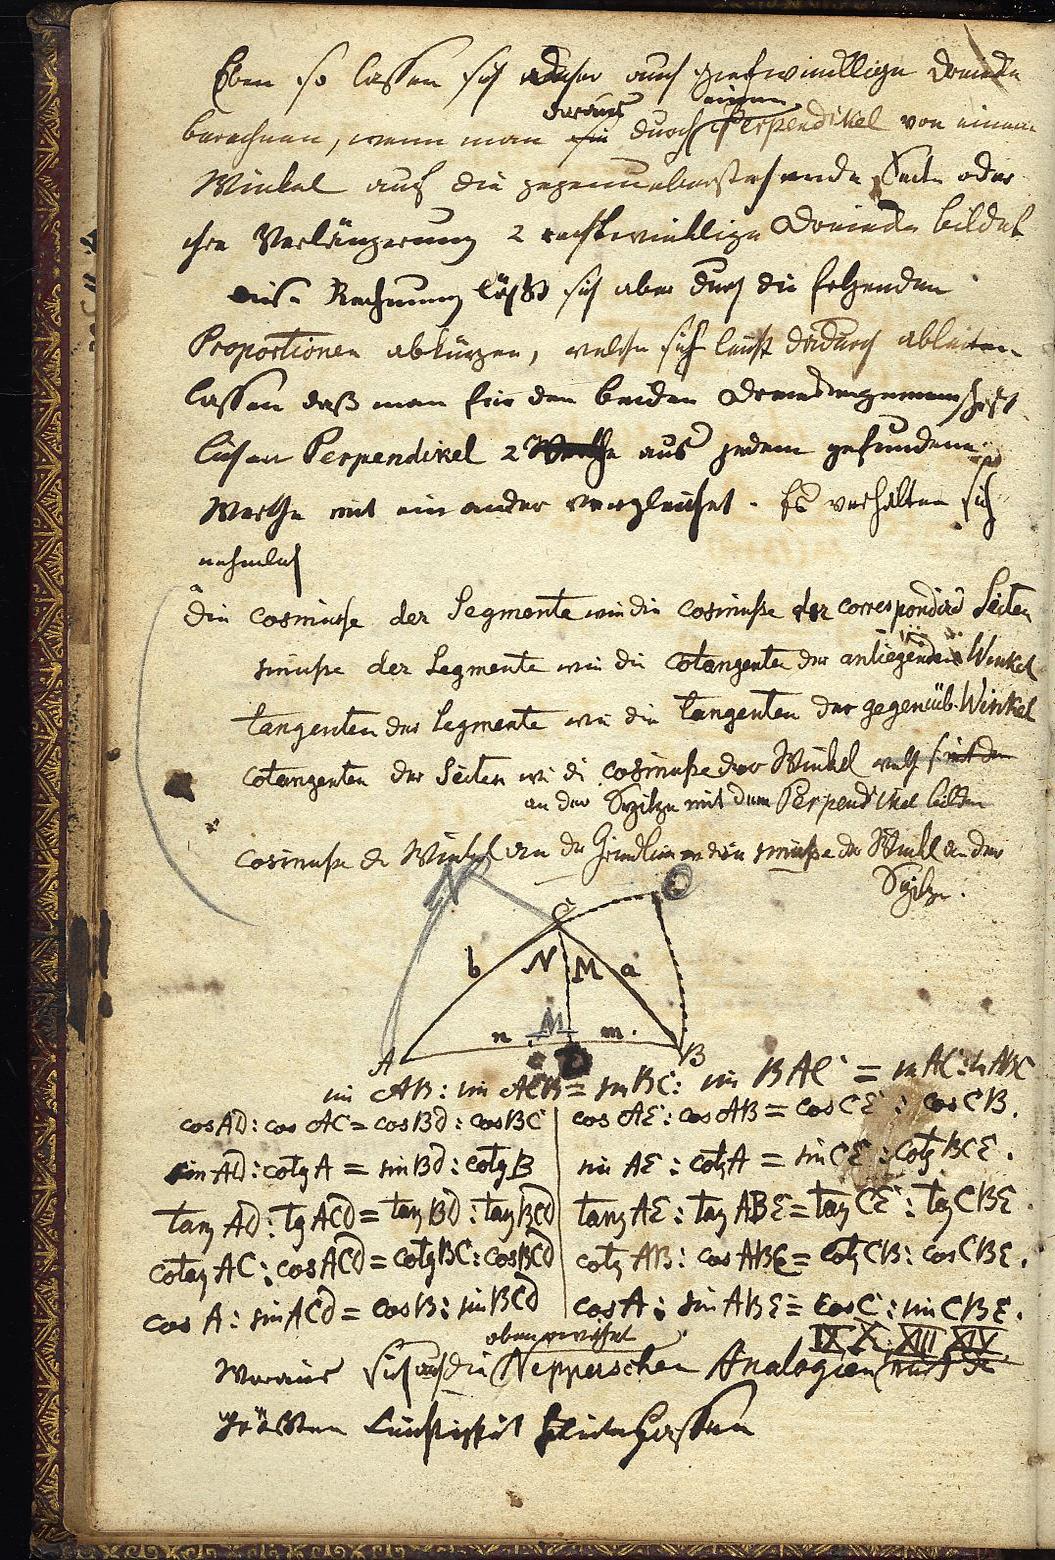 Eben so lassen sich daher auch schiefwinkllige Dreiecke
daraus einen
berechnen, wenn man sie durch Perpendikel von einem
Winkel auf die gegenueberstehende Seite oder
ihre Verlängerung 2 rechtwinkllige Dreiecke bildet
diese Rechnung läßt sich aber durch die folgenden
Proportionen abkürzen, welche sich leicht dadurch ableiten
lassen daß man für den beiden Dreiecken gemeinschaft
lichen Perpendikel 2 Werthe aus jedem gefundene
Werthe mit einander vergleichet. Es verhalten sich
nehmlich
Die cosinuße der Segmente wie die cosinuße der correspondird Seiten
sinuße der Segmente wie die cotangenten der anliegenden Winkel
tangenten der Segmente wie die tangenten der gegenüb. Winkel
cotangenten der Seiten wie die cosinuße der Winkel
an der Spitze mit dem Perpendikel bilden
cosinuße der Winkel an der Grundlinie wie die sinuße der Winkel an der
Spitze.
C
b N M a
n M m.
A D B
sin AB : sin ACB = sin BC : sin BAC = sin AC : sin ABC
cos AD : cos AC = cos BD : cos BC | cos AE : cos AB = cos CE : cos CB.
sin AD : cotg A = sin BD : cotg B | sin AE : cotg A = sin CE : cotg BCE.
tang AD : tg ACD = tag BD : tag BCD | tang AE : tag ABE = tag CE : tag CBE.
cotag AC : cos ACD = cotg BC : cos BCD | cotg AB : cos ABE = cotg CB : cos CBE.
cos A : sin ACD = cos B : sin BCD | cos A : sin ABE = cos C : sin CBE.
oben erwähnt IX X. XIII XIV
Woraus sich auch die Nepperschen Analogien mit der
größten Leichtigkeit herleiten lassen